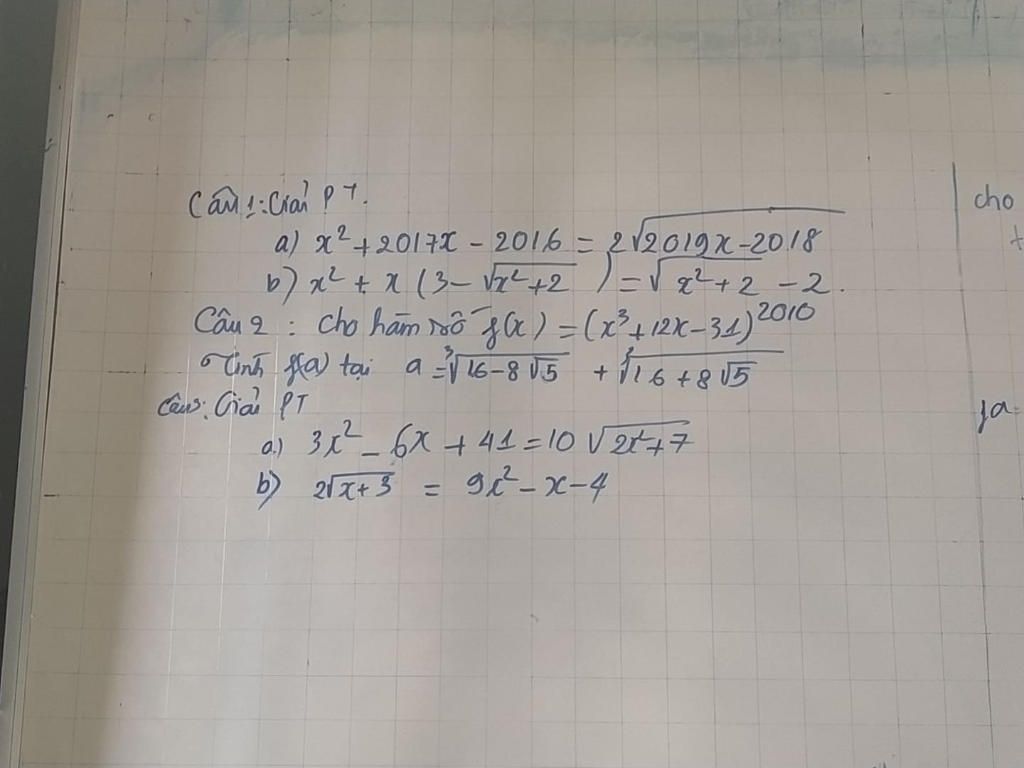 Câu 1: Giải PT.
a) x² + 2017x - 2016 = 2√(2019x - 2018)
b) x² + x (3 - √(x² + 2)) = √(x² + 2) - 2.
Câu 2 : cho hàm số f(x) = (x³ + 12x - 31)²⁰¹⁰
Tính f(a) tại a = ∛(16 - 8√5) + ∛(16 + 8√5)
Câu 3: Giải PT
a) 3x² - 6x + 41 = 10 √(2x + 7)
b) 2√(x + 3) = 9x² - x - 4
cho